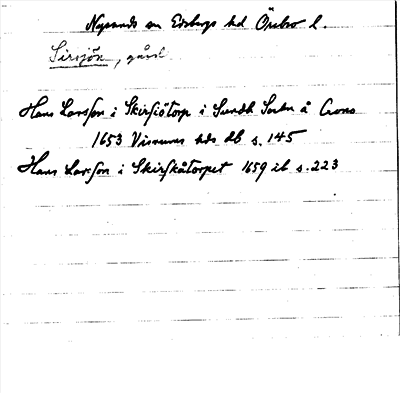 Nysunds sn Edsbergs hd Örebro l.
Sirsjön, gård
Hans Larsson i Skirsiötorp i Sundh Sochn å Crono
1653 Visnums hds db s. 145
Hans Larsson i Skirsskåtorpet 1659 ib s. 223